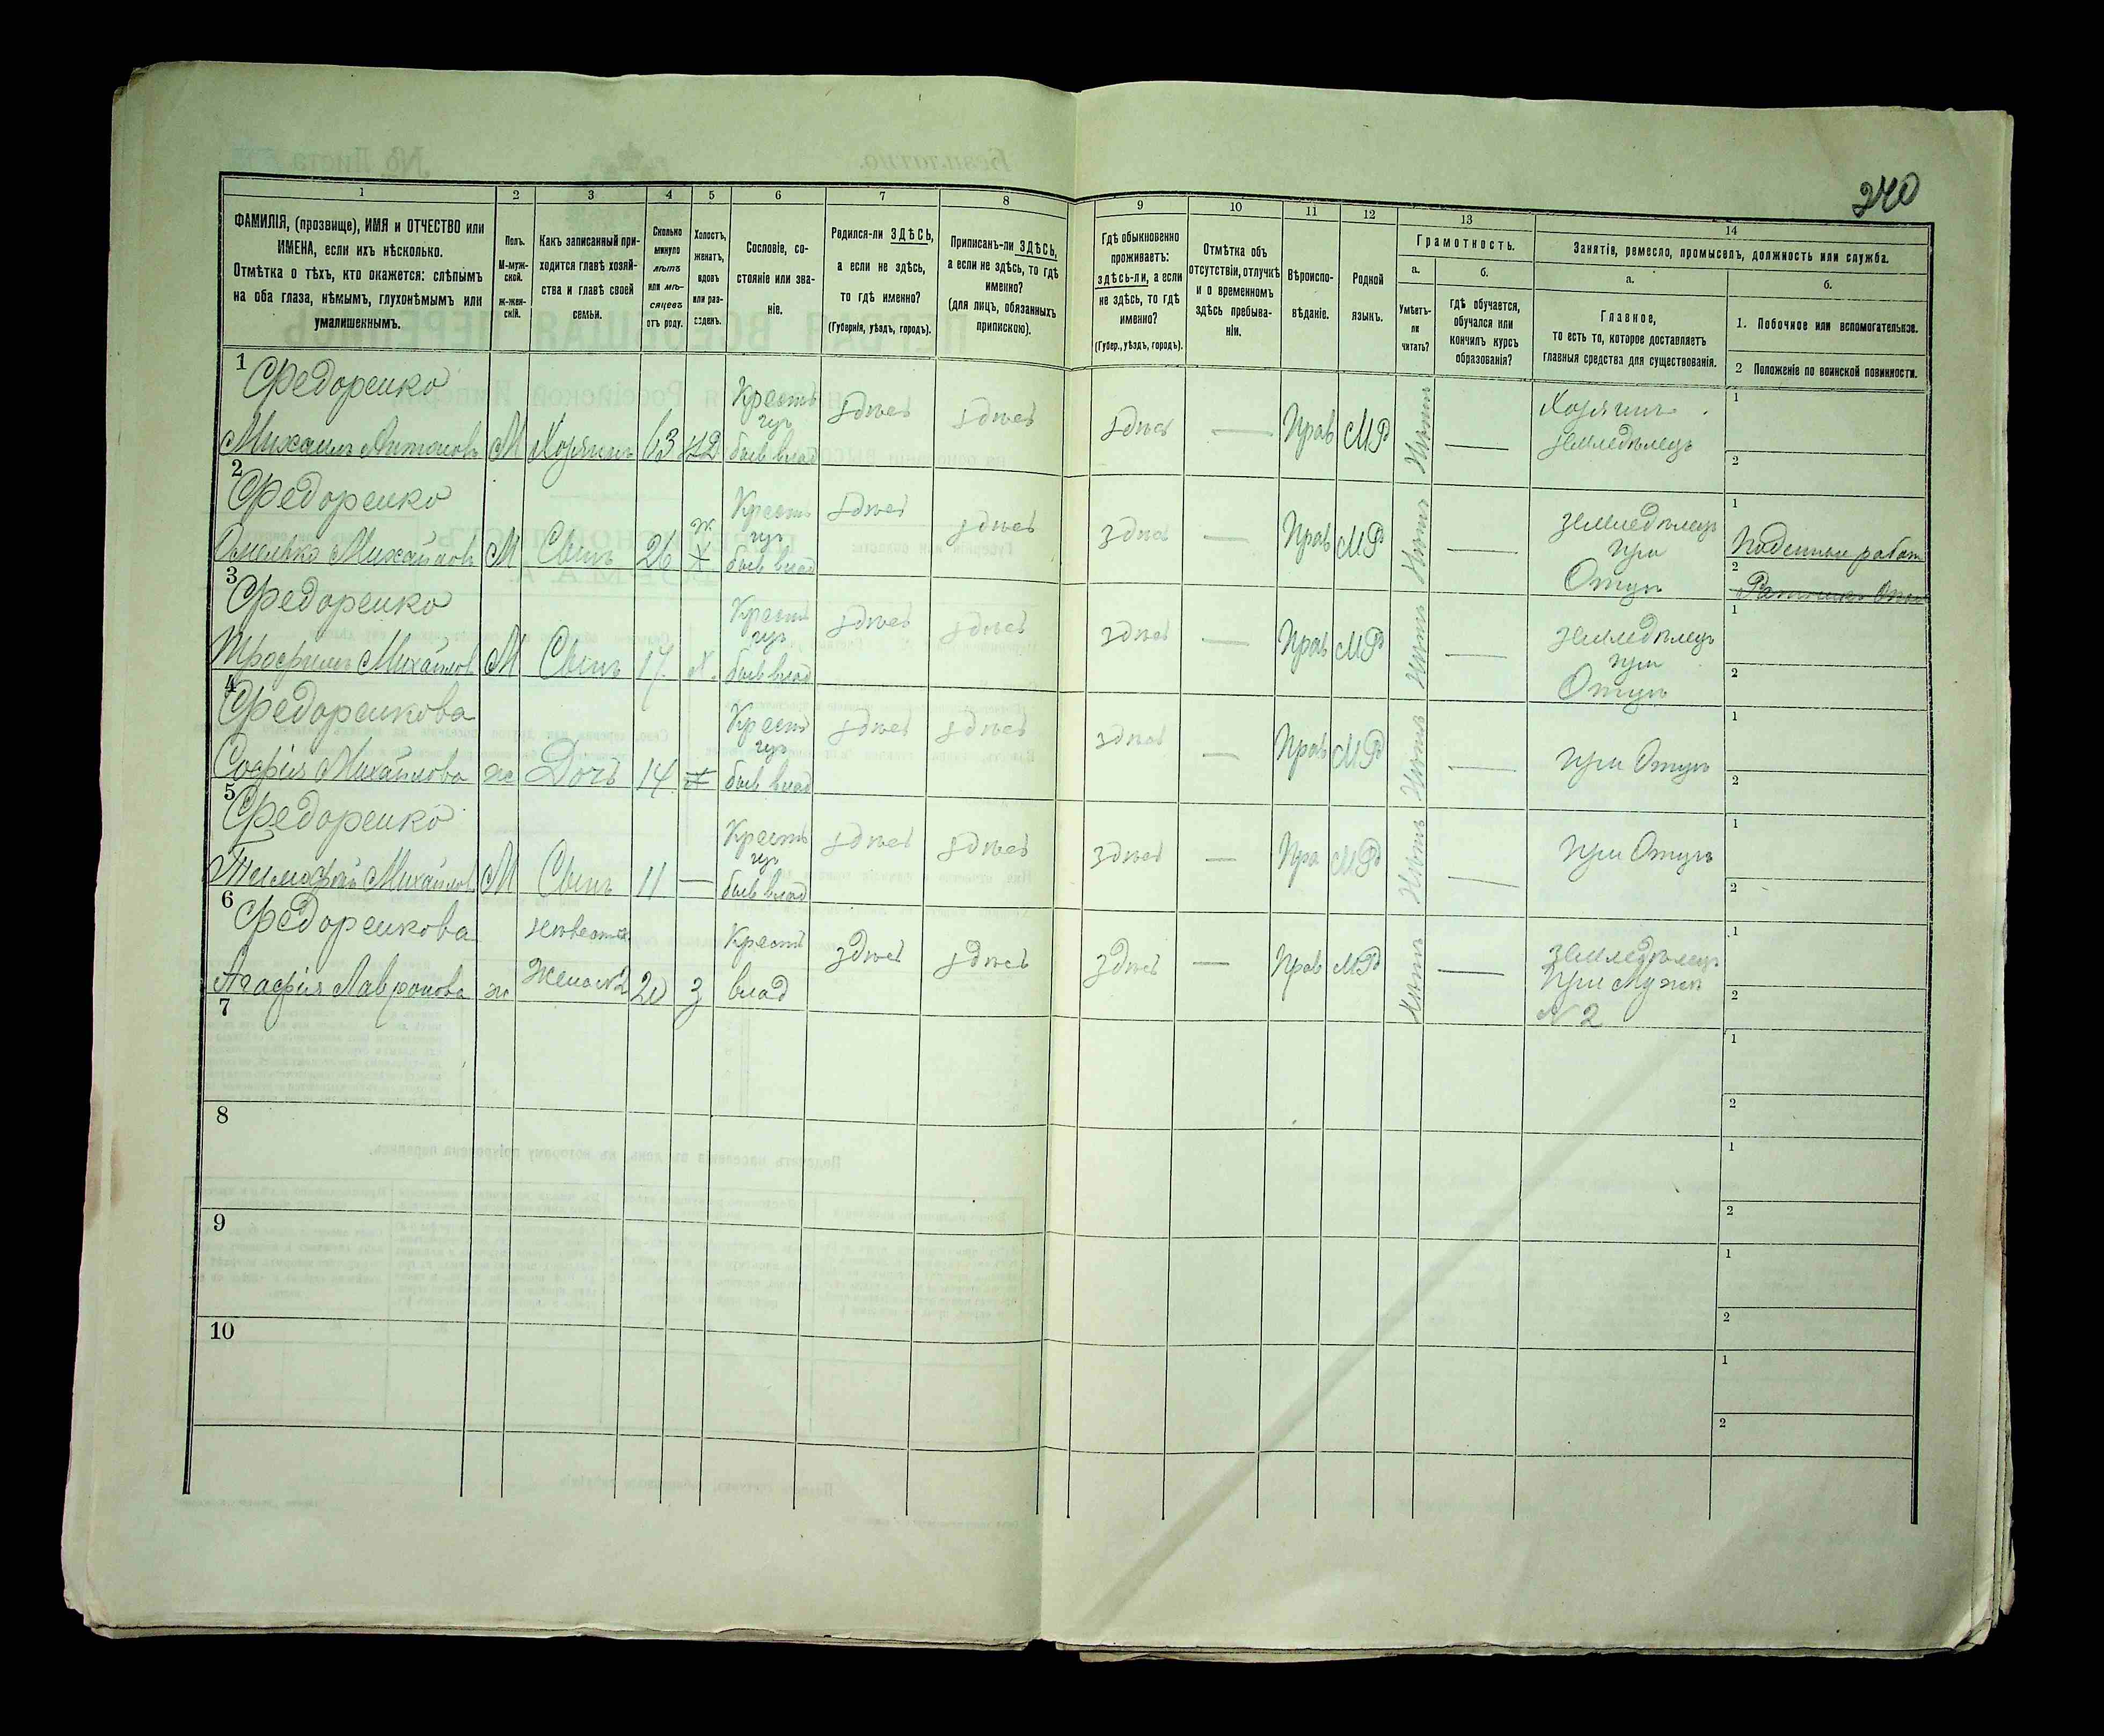 240
1
2
3
4
5
6
7
8
9
10
11
12
13
14
ФАМИЛІЯ, (прозвище), ИМЯ и ОТЧЕСТВО или
ИМЕНА, если ихъ нѣсколько.
Отмѣтка о тѣхъ, кто окажется: слѣпымъ
на оба глаза, нѣмымъ, глухонѣмымъ или
умалишеннымъ.
Полъ.
М-муж-
ской.
ж-жен-
скій.
Какъ записанный при-
ходится главѣ хозяй-
ства и главѣ своей
семьи.
Сколько
минуло
лѣтъ
или мѣ-
сяцевъ
отъ роду.
Холостъ,
женатъ,
вдовъ
или раз-
веденъ.
Сословіе, со-
стояніе или зва-
ніе.
Родился-ли ЗДѢСЬ,
а если не здѣсь,
то гдѣ именно?
(Губернія, уѣздъ, городъ).
Приписанъ-ли ЗДѢСЬ,
а если не здѣсь, то гдѣ
именно?
(для лицъ, обязанныхъ
припискою).
Гдѣ обыкновенно
проживаетъ:
здѣсь-ли, а если
не здѣсь, то гдѣ
именно?
(Губер., уѣздъ, городъ).
Отмѣтка объ
отсутствіи, отлучкѣ
и о временномъ
здѣсь пребыва-
ніи.
Вѣроиспо-
вѣданіе.
Родной
языкъ.
Грамотность.
а.
б.
Умѣетъ-
ли
читать?
гдѣ обучается,
обучался или
кончилъ курсъ
образованія?
Занятія, ремесло, промыселъ, должность или служба.
а.
б.
Главное,
то есть то, которое доставляетъ
главныя средства для существованія.
1. Побочное или вспомогательное.
2 Положеніе по воинской повинности.
1
Федоренко
Михаилъ Антоновъ М Хозяинъ 63
Крестъ
бывъ влад
здѣсь здѣсь здѣсь — Прав МР Нѣтъ —
Хозяинъ
земледѣлецъ
1
2
2
Федоренко
Омелько Михайловъ М Сынъ 26 ж Х
Крестъ
бывъ влад
здѣсь здѣсь здѣсь — Прав МР Нѣтъ —
земледѣлецъ
при
Отцѣ
1
Поденный работ
2
3
Федоренко
Трофимъ Михайлов М Сынъ 17 х.
Крестъ
бывъ влад
здѣсь здѣсь здѣсь — Прав МР Нѣтъ —
земледѣлецъ
при
Отцѣ
1
2
4
Федоренкова
Софія Михайлова ж Дочь 14
Крестъ
бывъ влад
здѣсь здѣсь здѣсь — Прав МР Нѣтъ —
при Отцѣ
1
2
5
Федоренко
Михайлов М Сынъ 11 —
Крестъ
бывъ влад
здѣсь здѣсь здѣсь — Пра МР Нѣтъ —
при Отцѣ
1
2
6
Федоренкова
Агафія Лавронова ж
Невестка
Жена №2
20 З
Крест
влад
здѣсь здѣсь здѣсь — Прав МР Нѣтъ —
земледѣлец
при Мужѣ
№ 2
1
2
7
1
2
8
1
2
9
1
2
10
1
2